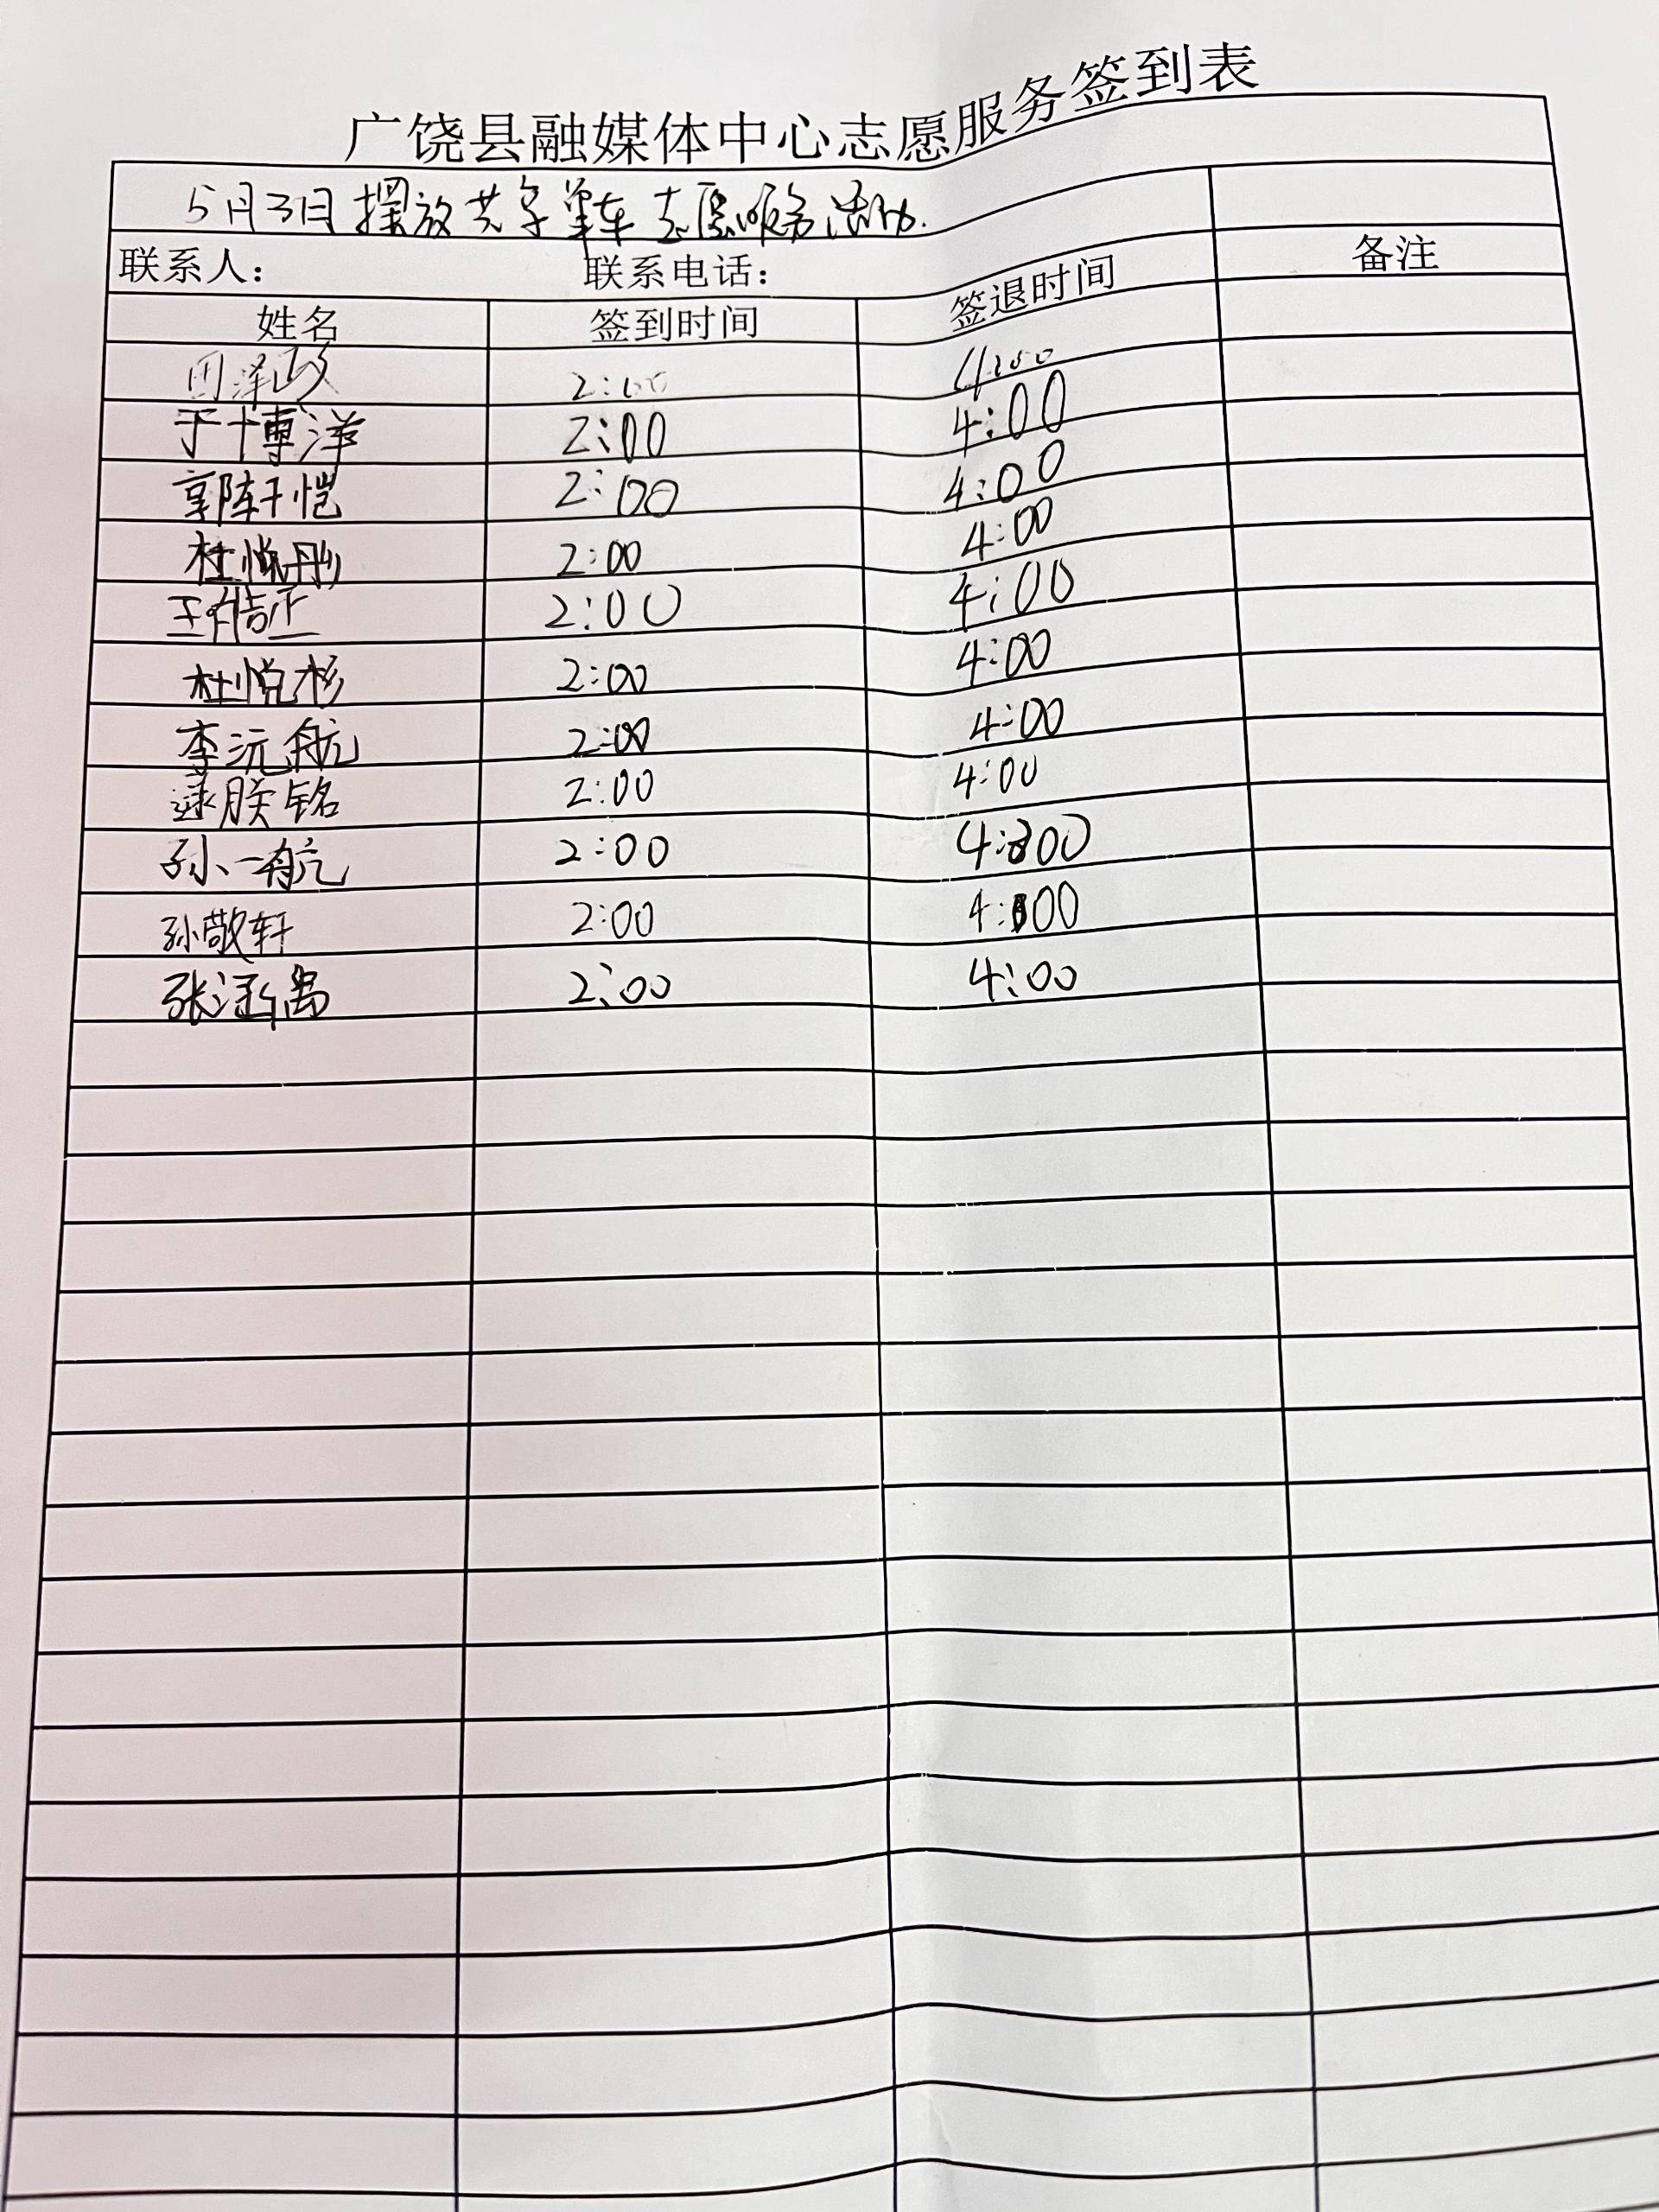 广饶县融媒体中心志愿服务签到表
5月3日摆放共享单车志愿服务活动.
联系人： 联系电话：
姓名 签到时间 签退时间 备注
田泽政 2:00 4:00
于博洋 2:00 4:00
郭轩恺 2:00 4:00
杜悦彤 2:00 4:00
2:00 4:00
杜悦杉 2:00 4:00
李沅航 2:00 4:00
2:00 4:00
孙一航 2:00 4:00
孙敬轩 2:00 4:00
张涵禹 2:00 4:00